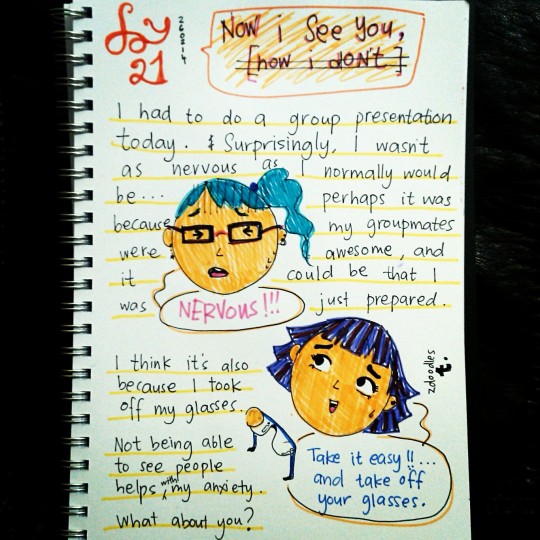 Day
21
260214
Now i See You,
[now i dON't]
I had to do a group presentation
today. & Surprisingly, I wasn't
as nervous as I normally would
be... perhaps it was
because my groupmates
were awesome, and
it could be that I
was just prepared.
NERVOUS!!!
I think it's also
because I took
off my glasses.
Not being able
to see people
helps with my anxiety.
What about you?
zdoodles
t.
Take it easy!!...
and take off
your glasses.